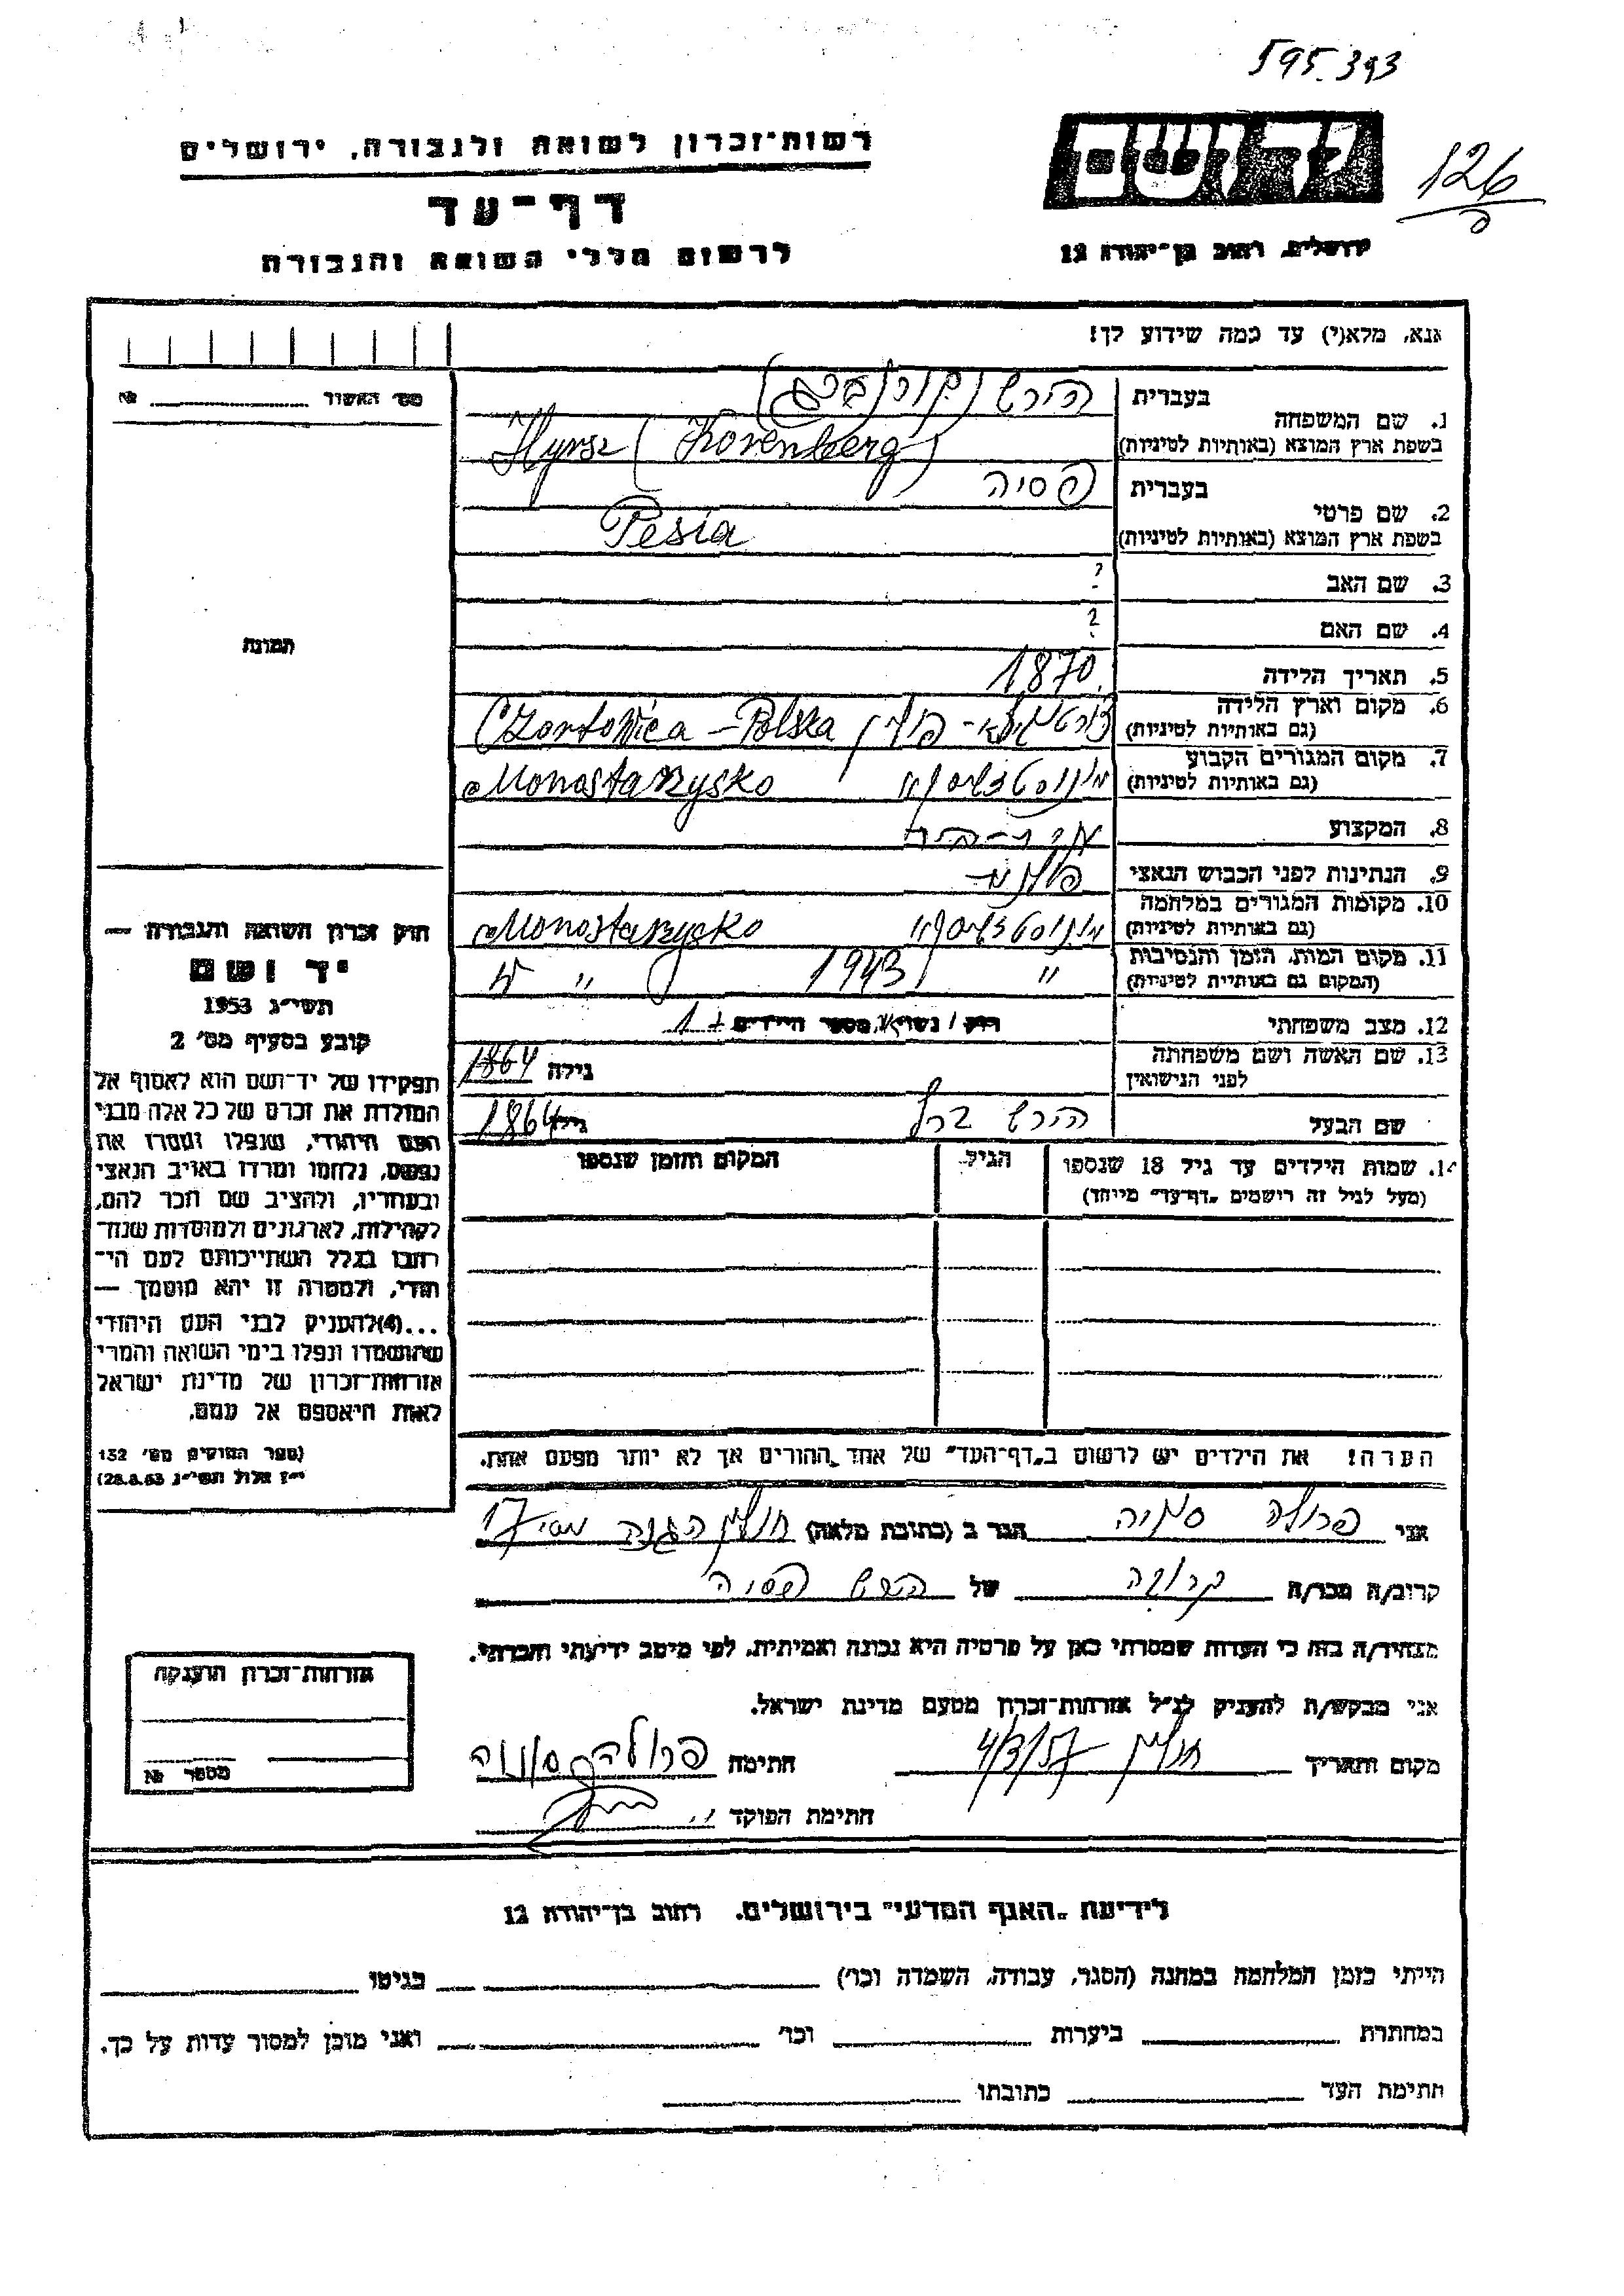 595.393
רשות־זכרון לשואה ולגבורה, ירושלים
יד ושם
126
דף־עד
לרשום חללי השואה והגבורה
ירושלים, רחוב בן־יהודה 12
אנא, מלא(י) עד כמה שידוע לך!
מס׳ האשור № 
בעברית הירש (קורנברג)
1. שם המשפחה
בשפת ארץ המוצא (באותיות לטיניות) Hyrsz (Korenberg)
בעברית פסיה
2. שם פרטי
בשפת ארץ המוצא (באותיות לטיניות) Pesia
3. שם האב ?
4. שם האם ?
תמונה
5. תאריך הלידה 1870
6. מקום וארץ הלידה
(גם באותיות לטיניות) פולין Czortowica – Polska
7. מקום המגורים הקבוע
(גם באותיות לטיניות) Monostarzysko
8. המקצוע
9. הנתינות לפני הכבוש הנאצי
10. מקומות המגורים במלחמה
(גם באותיות לטיניות) Monostarzysko
11. מקום המות, הזמן והנסיבות
(המקום גם באותיות לטיניות) " 1943 " "
12. מצב משפחתי רוק / נשוי/אה, מספר הילדים 1
13. שם האשה ושם משפחתה
לפני הנישואין גילה 1864
שם הבעל הירש ברל גילו 1864
14. שמות הילדים עד גיל 18 שנספו הגיל המקום והזמן שנספו
(מעל לגיל זה רושמים „דף־עד״ מיוחד)
חוק זכרון השואה והגבורה —
יד ושם
תשי״ג 1953
קובע בסעיף מס׳ 2
תפקידו של יד־ושם הוא לאסוף אל
המולדת את זכרם של כל אלה מבני
העם היהודי, שנפלו ומסרו את
נפשם, נלחמו ומרדו באויב הנאצי
ובעוזריו, ולהציב שם וזכר להם,
לקהילות, לארגונים ולמוסדות שנח־
רבו בגלל השתייכותם לעם הי־
הודי, ולמטרה זו יהא מוסמך —
...(4)להעניק לבני העם היהודי
שהושמדו ונפלו בימי השואה והמרי
אזרחות־זכרון של מדינת ישראל
לאות היאספם אל עמם.
(ספר החוקים מס׳ 132
י״ז אלול תשי״ג 28.8.53)
הערה! את הילדים יש לרשום ב„דף־העד״ של אחד ההורים אך לא יותר מפעם אחת.
אני פרולה הגר ב (כתובת מלאה) חולון הגנה 17
קרוב/ה מכר/ה קרובה של הירש פסיה
מצהיר/ה בזה כי העדות שמסרתי כאן על פרטיה היא נכונה ואמיתית, לפי מיטב ידיעתי והכרתי.
אני מבקש/ת להעניק לנ״ל אזרחות־זכרון מטעם מדינת ישראל.
מקום ותאריך חולון 4/3/57 חתימה פרולה
חתימת הפוקד
אזרחות־זכרון הוענקה
מספר №
לידיעת „האגף המדעי״ בירושלים. רחוב בן־יהודה 12
הייתי בזמן המלחמה במחנה (הסגר, עבודה, השמדה וכו׳) בגיטו
במחתרת ביערות וכו׳ ואני מוכן למסור עדות על כך.
חתימת העד כתובתו